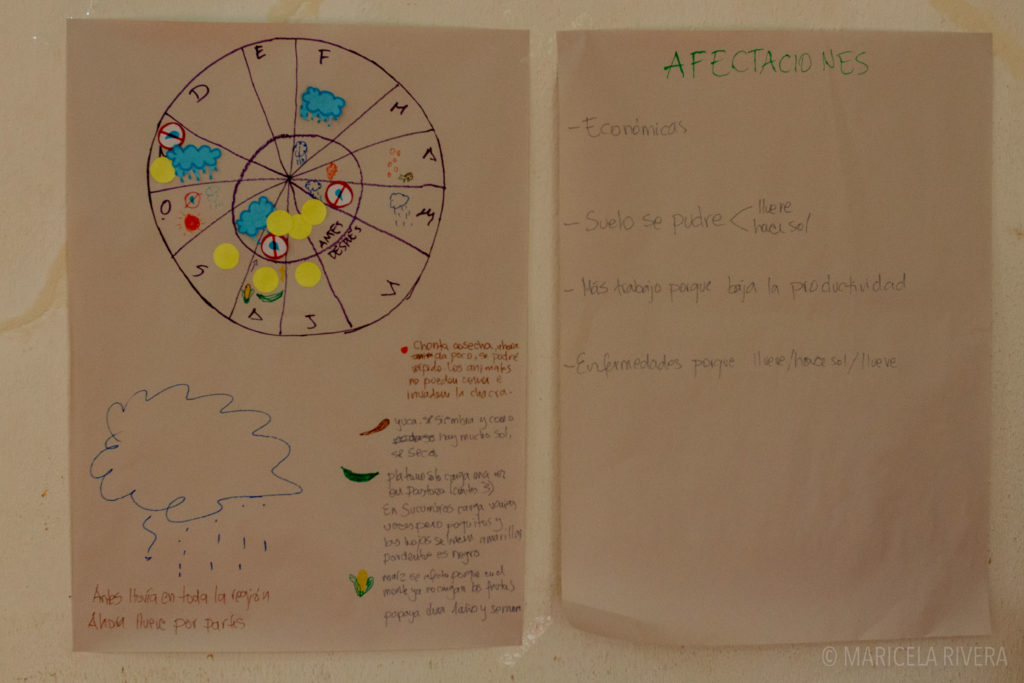 E
F
M
A
M
J
J
A
S
O
D
ANTES
DESPUÉS
• Chonta cosecha, ahora
da poco, se pudre
rápido los animales
no pueden comer e
invaden la chacra.
yuca, se siembra y como
hay mucho sol,
se seca
platano solo carga una vez
en Pastaza (antes 3)
En Sucumbios carga varias
veces pero poquitos y
las hojas se hacen amarillas
por dentro es negro
maiz se afecta porque en el
monte ya no cargan las frutas
papaya dura 1 año y se muere
Antes llovía en toda la región
Ahora llueve por partes
AFECTACIONES
- Económicas
- Suelo se pudre < llueve
hace sol
- Más trabajo porque baja la productividad
- Enfermedades porque llueve/hace sol/llueve
© MARICELA RIVERA